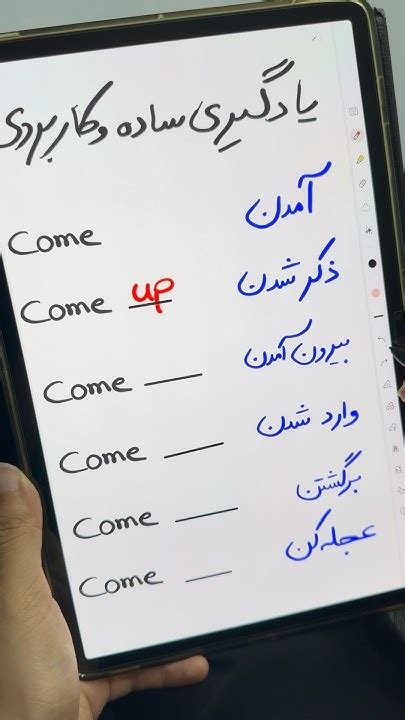 یادگیری ساده و کاربردی
Come آمدن
Come up ذکر شدن
Come ___ بیرون آمدن
Come ___ وارد شدن
Come ___ برگشتن
Come ___ عجله کن